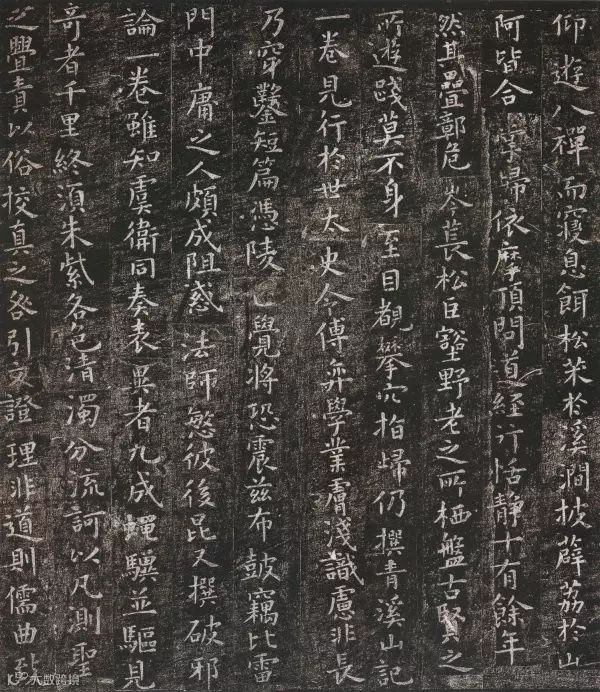 仰遊八禪而寢息餌松朮於溪澗披薜荔於山
阿皆合掌歸依摩頂問道經行恬靜十有餘年
然其疊鄣危岑萇松巨壑野老之所栖盤古賢之
所遊踐莫不身至目覩攀穴指歸仍撰青溪山記
一卷見行於世太史令傅弈學業膚淺識慮非長
乃穿鑿短篇憑陵正覺將恐震茲布鼓竊比雷
門中庸之人頗成阻惑 法師愍彼後昆又撰破邪
論一卷雖知虞衛同奏表異者九成蠅驥並驅見
奇者千里終須朱紫各色清濁分流訶以凡測聖
之舋責以俗校真之咎引文證理非道則儒曲致
大数跨境